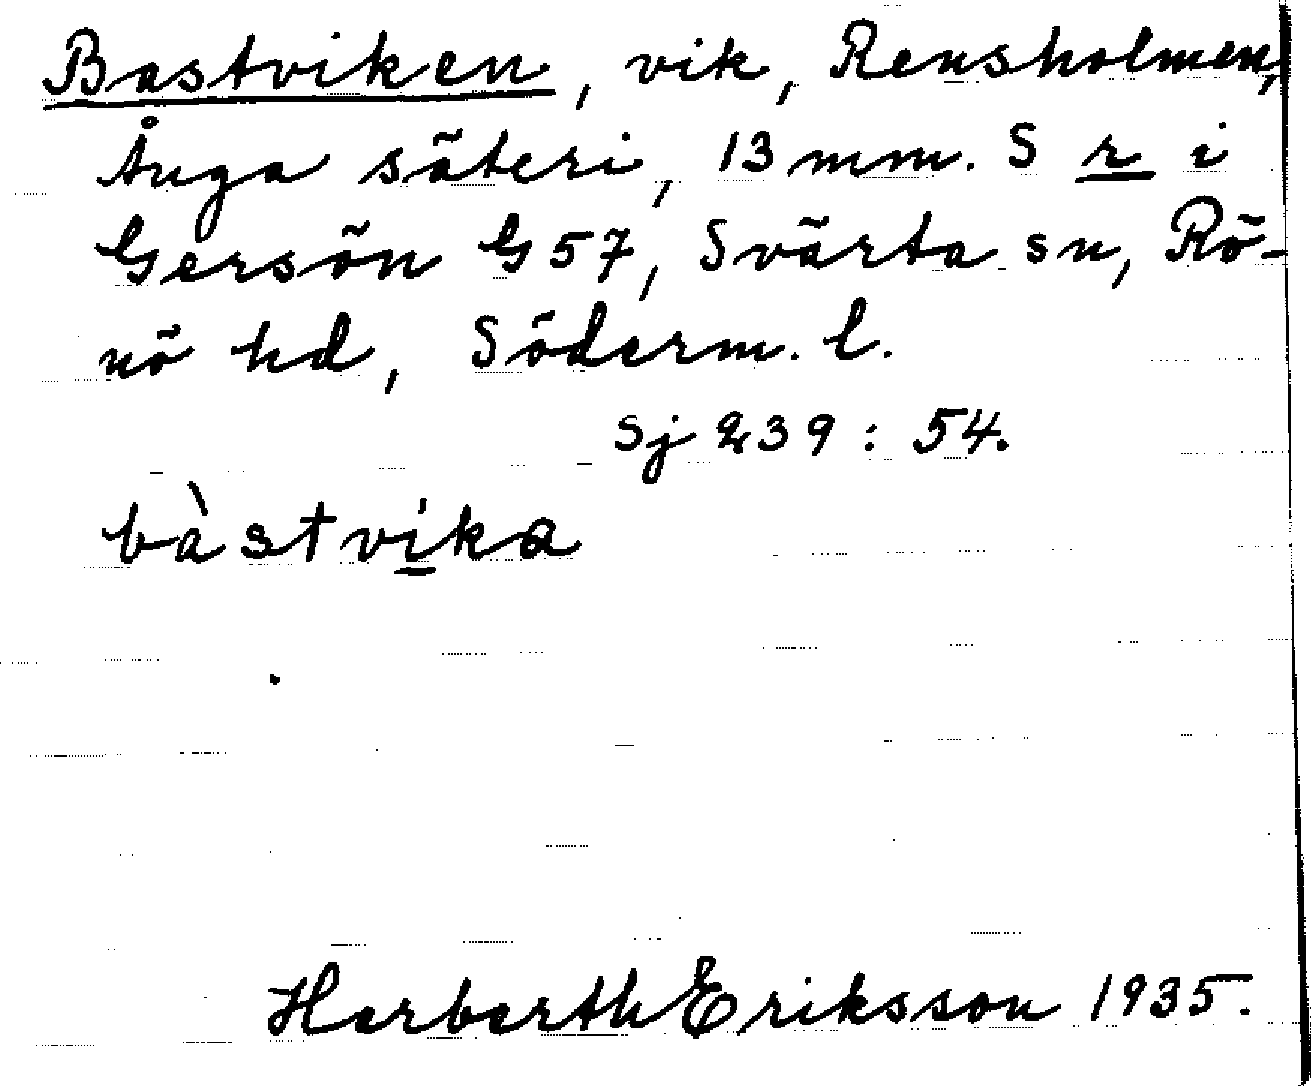 Bastviken, vik, Rensholmen,
Ånga säteri, 13 mm. S r i
Gersön G 57, Svärta sn, Rö-
nö hd, Söderm. l.
Sj 239 : 54.
bàstvika
Herberth Eriksson 1935.